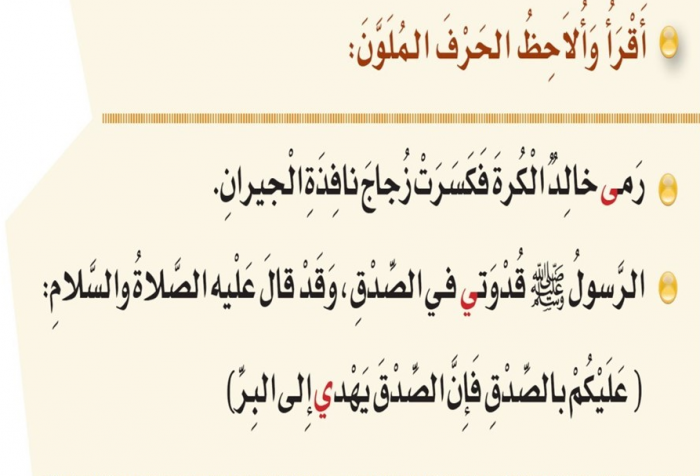 أَقْرَأُ وَأُلاَحِظُ الحَرْفَ المُلَوَّنَ:
رَمى خالِدٌ الْكُرةَ فَكَسَرَتْ زُجاجَ نافِذَةِ الْجيرانِ.
الرَّسولُ ﷺ قُدْوَتي في الصِّدْقِ، وَقَدْ قالَ عَلَيْه الصَّلاةُ والسَّلامِ:
( عَلَيْكُمْ بالصِّدْقِ فَإِنَّ الصِّدْقَ يَهْدي إِلى البِرِّ)